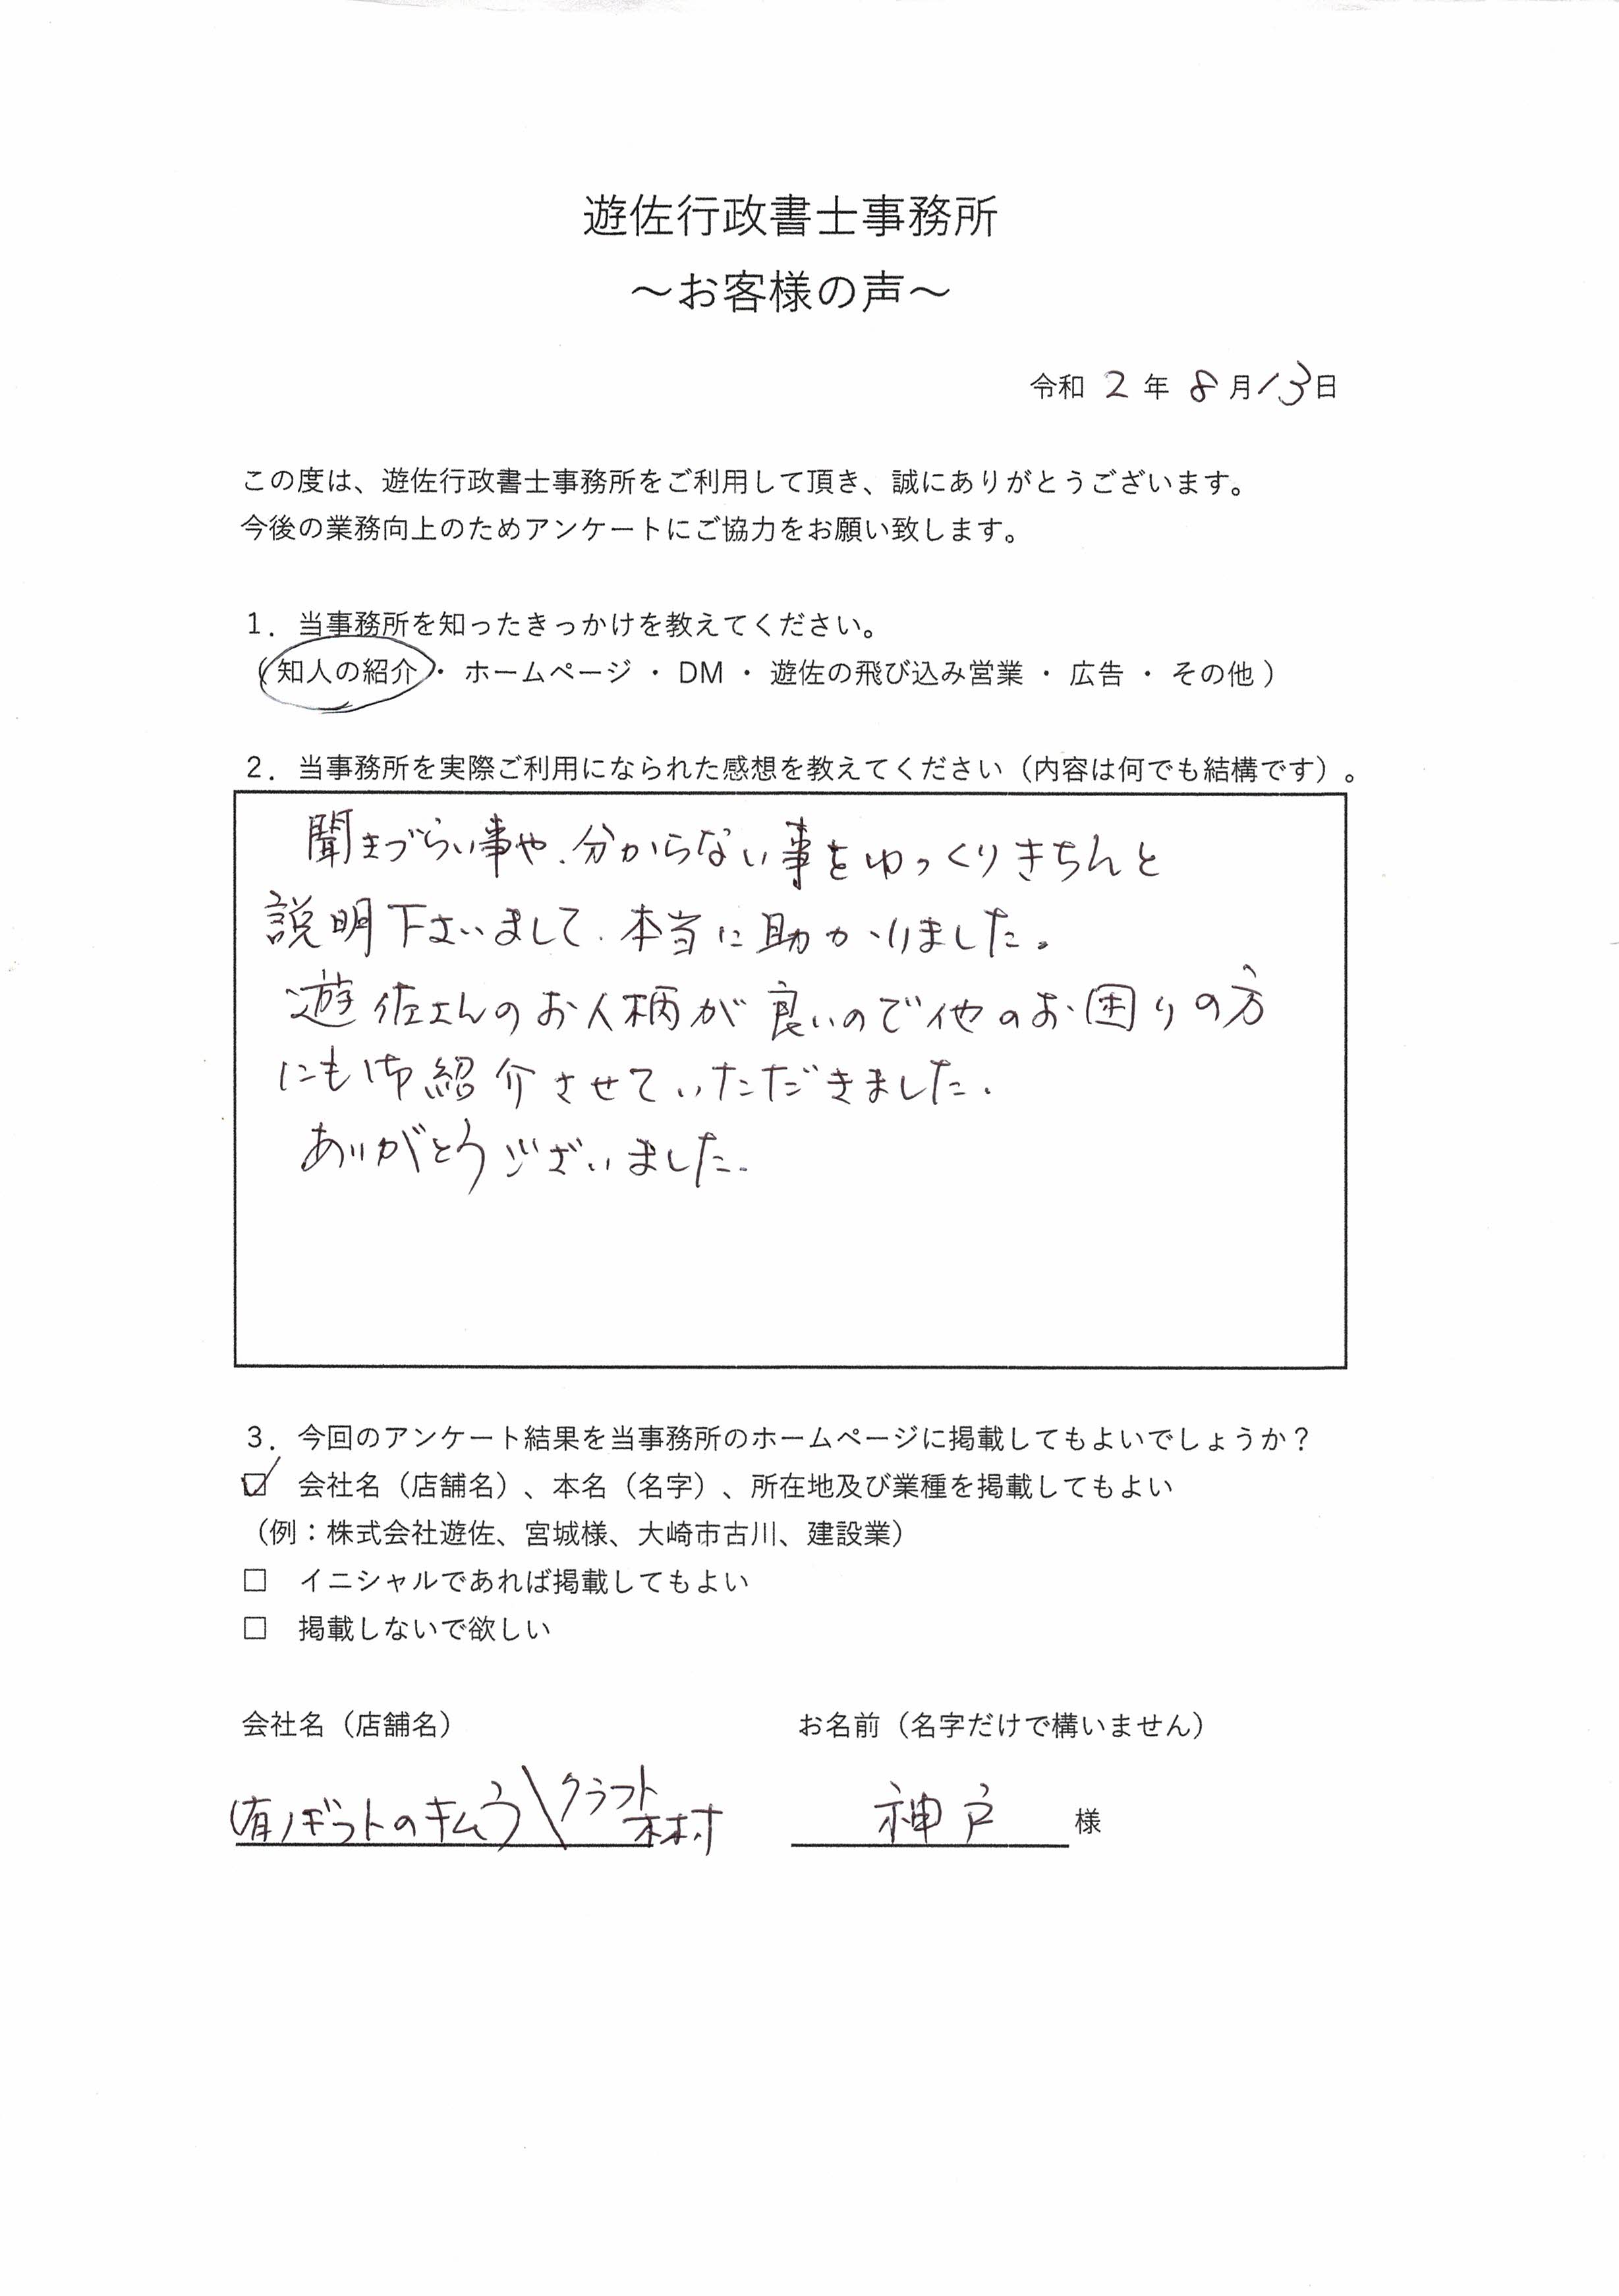 遊佐行政書士事務所
～お客様の声～
令和 2 年 8 月 13 日
この度は、遊佐行政書士事務所をご利用して頂き、誠にありがとうございます。
今後の業務向上のためアンケートにご協力をお願い致します。
1．当事務所を知ったきっかけを教えてください。
（知人の紹介・ ホームページ ・ DM ・ 遊佐の飛び込み営業 ・ 広告 ・ その他 ）
2．当事務所を実際ご利用になられた感想を教えてください（内容は何でも結構です）。
聞きづらい事や、分からない事をゆっくりきちんと
説明下さいまして、本当に助かりました。
遊佐さんのお人柄が良いので他のお困りの方
にも御紹介させていただきました。
ありがとうございました。
3．今回のアンケート結果を当事務所のホームページに掲載してもよいでしょうか？
☑ 会社名（店舗名）、本名（名字）、所在地及び業種を掲載してもよい
（例：株式会社遊佐、宮城様、大崎市古川、建設業）
□ イニシャルであれば掲載してもよい
□ 掲載しないで欲しい
会社名（店舗名） お名前（名字だけで構いません）
(有)ギフトのキムラ \ クラフト木村 神戸 様